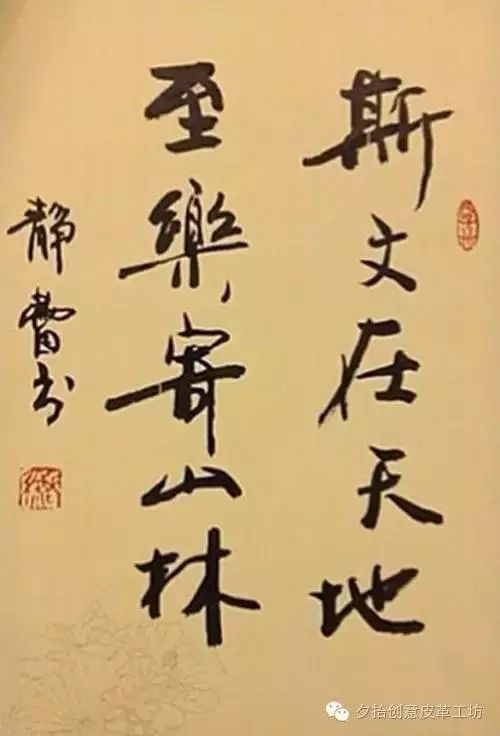 斯文在天地
至樂寄山林
静
书
夕拾创意皮革工坊